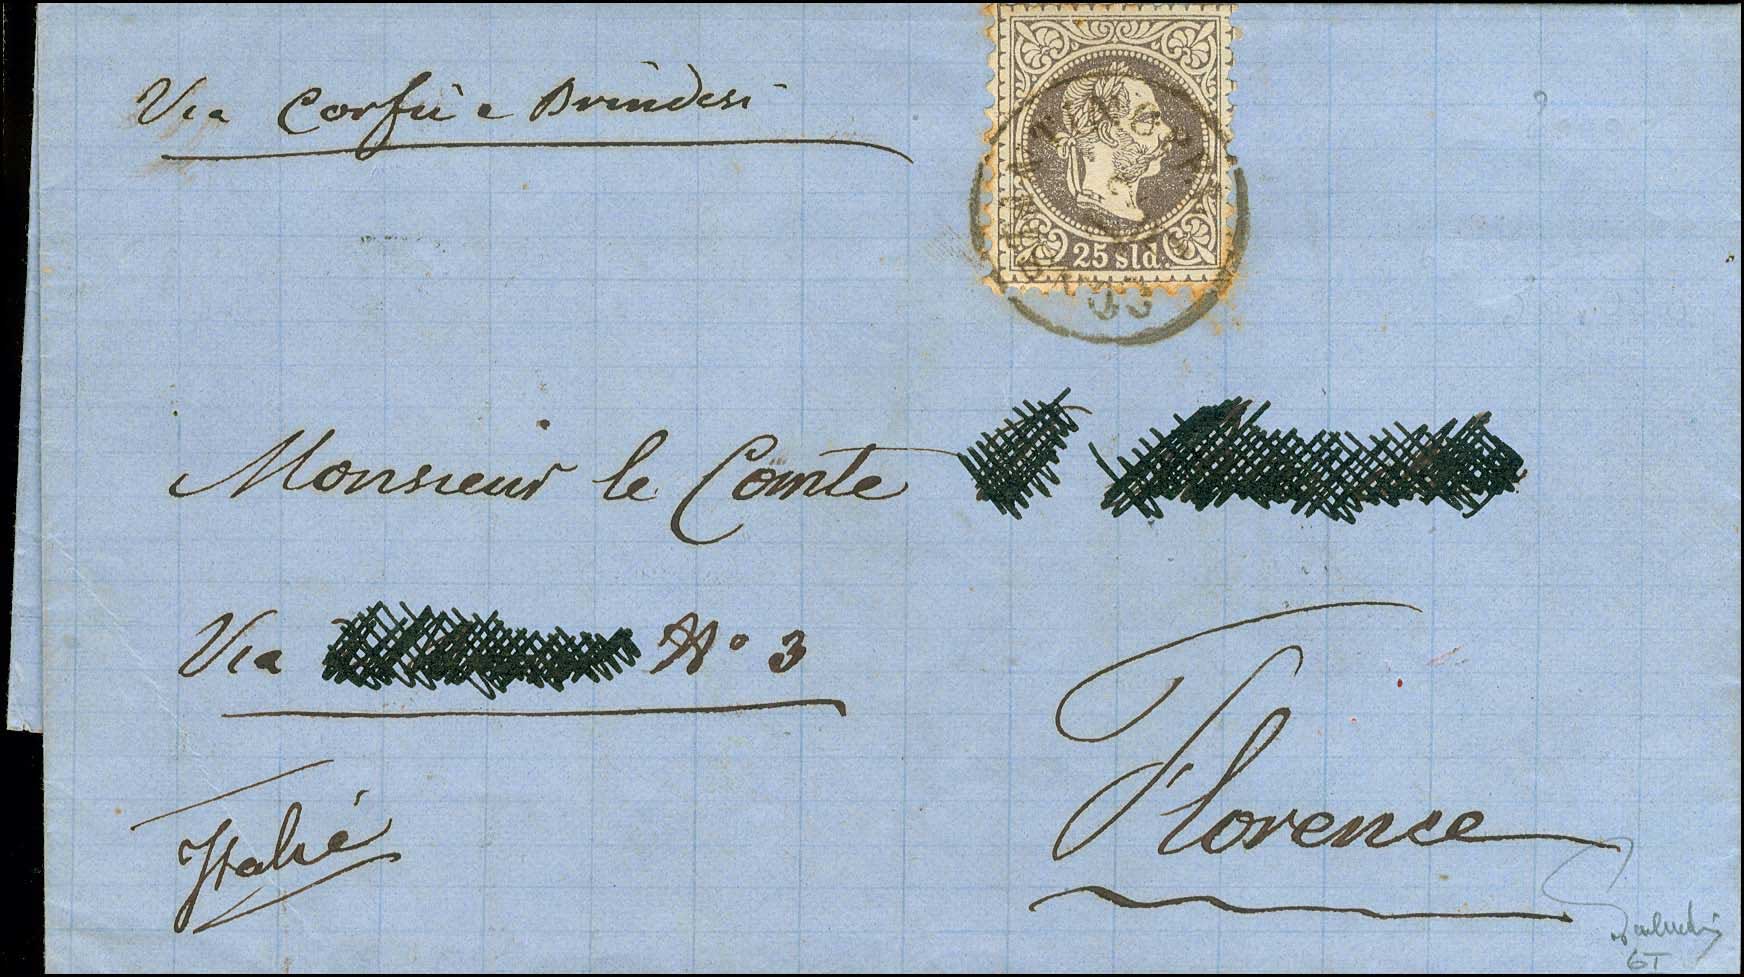 Via Corfù e Brindesi
25 sld.
Monsieur le Comte
Via Nº 3
Florence
Italie